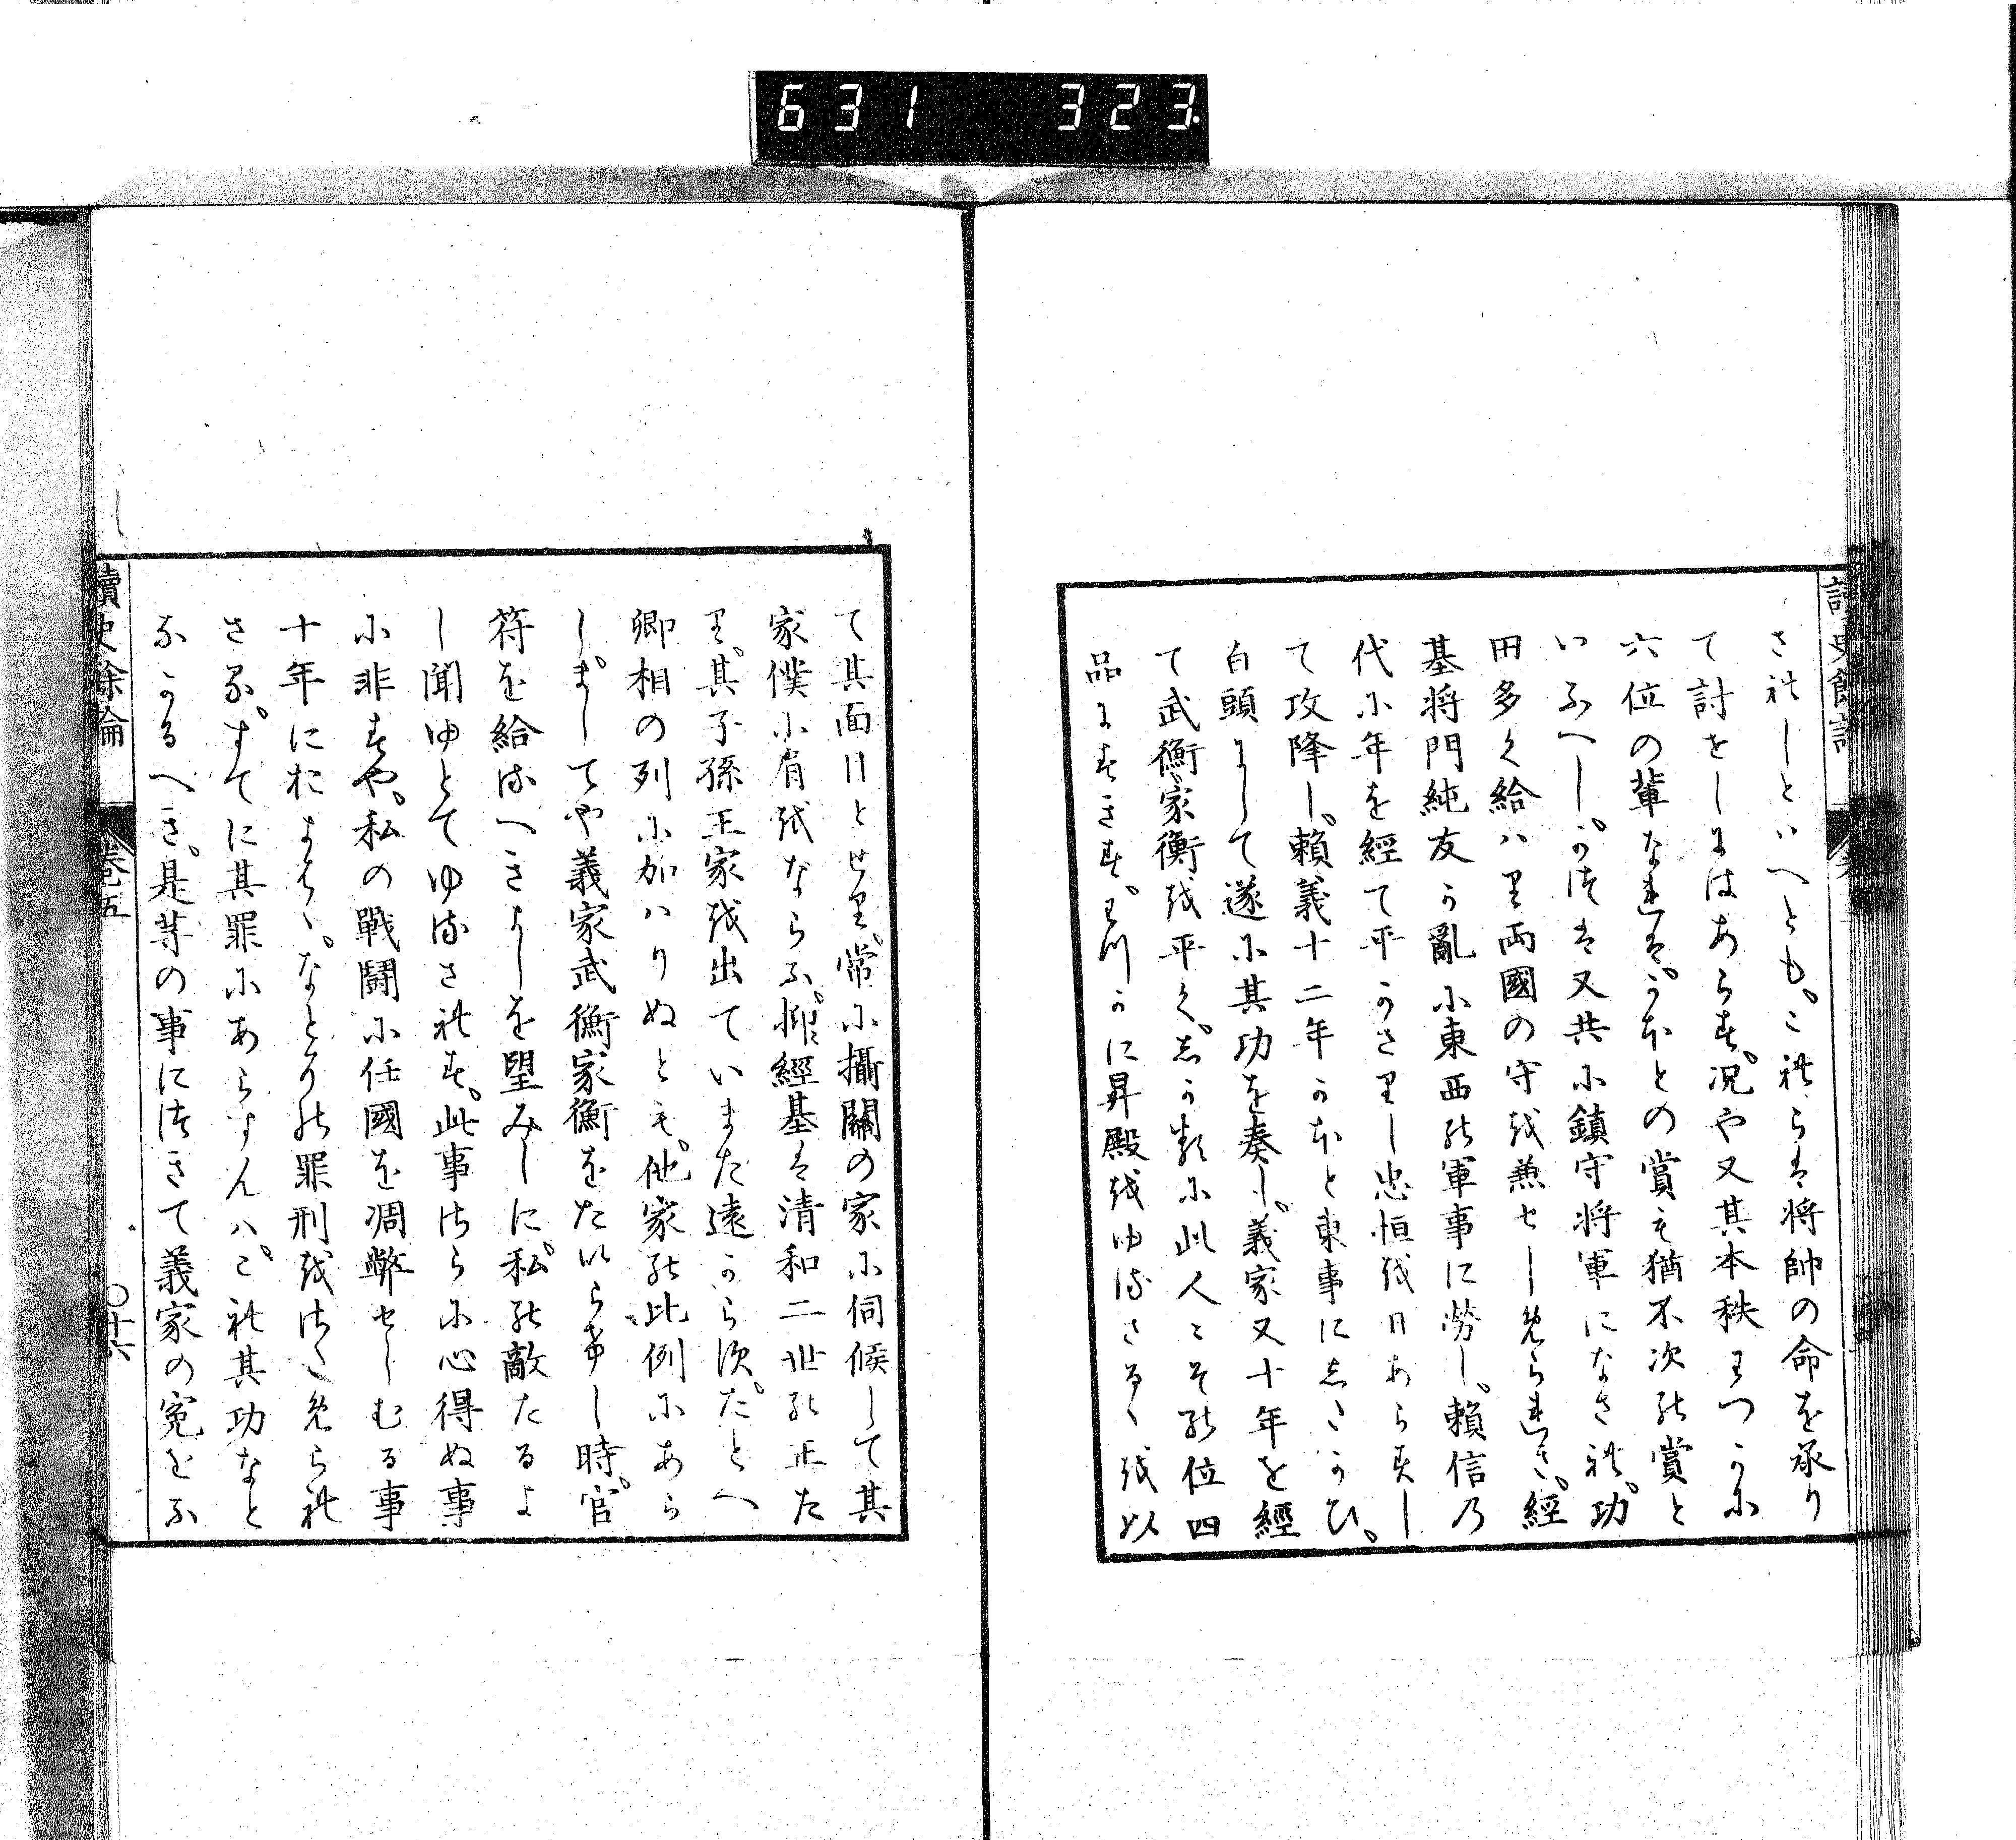 631 323
されしといへとも。これらは將帥の命を承り
て討をしにはあらす。况や又其本秩わつかに
六位の輩なれは。かほとの賞も猶不次の賞と
いふへし。かつは又共に鎮守將軍になされ。功
田多く給はり両國の守を兼せしめられき。經
基将門純友か亂に東西の軍事に勞し。頼信乃
代に年を經て平かさりし忠恒を日あらすし
て攻降し。頼義十二年かほと東事にしたかひ。
白頭にして遂に其功を奏し。義家又十年を經
て武衡家衡を平く。しか類に此人こそ能位四
品にすきす。わつかに昇殿をゆるさるゝを以
て其面目とせり。常に攝關の家に伺候して其
家僕に肩をならふ。抑經基は清和二世の正た
り。其子孫王家を出ていまた遠からす。たとへ
卿相の列に加はりぬとも。他家の比例にあら
し。ましてや義家武衡家衡をたいらけし時。官
符を給るへきよしを望みしに。私の敵たるよ
し聞ゆとてゆるされす。此事さらに心得ぬ事
に非すや。私の戰鬪に任國を凋弊せしむる事
十年におよはゝ。なとその罪刑をさためられ
さる。すてに其罪にあらすんは。これ其功なと
なかるへき。是等の事につきて義家の寃をふ
讀史餘論
卷五
○十六